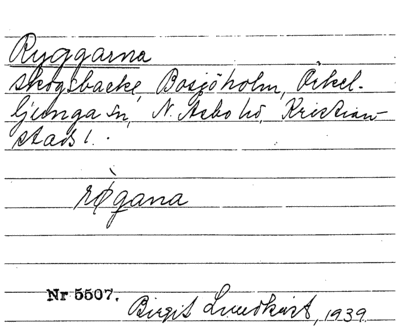 Ryggarna
skogsbacke, Bosjöholm, Örkel-
ljunga sn, N. Åsbo hd, Kristian-
stads l.
rø̀gana
Nr 5507.
Birgit Lundkvist, 1939